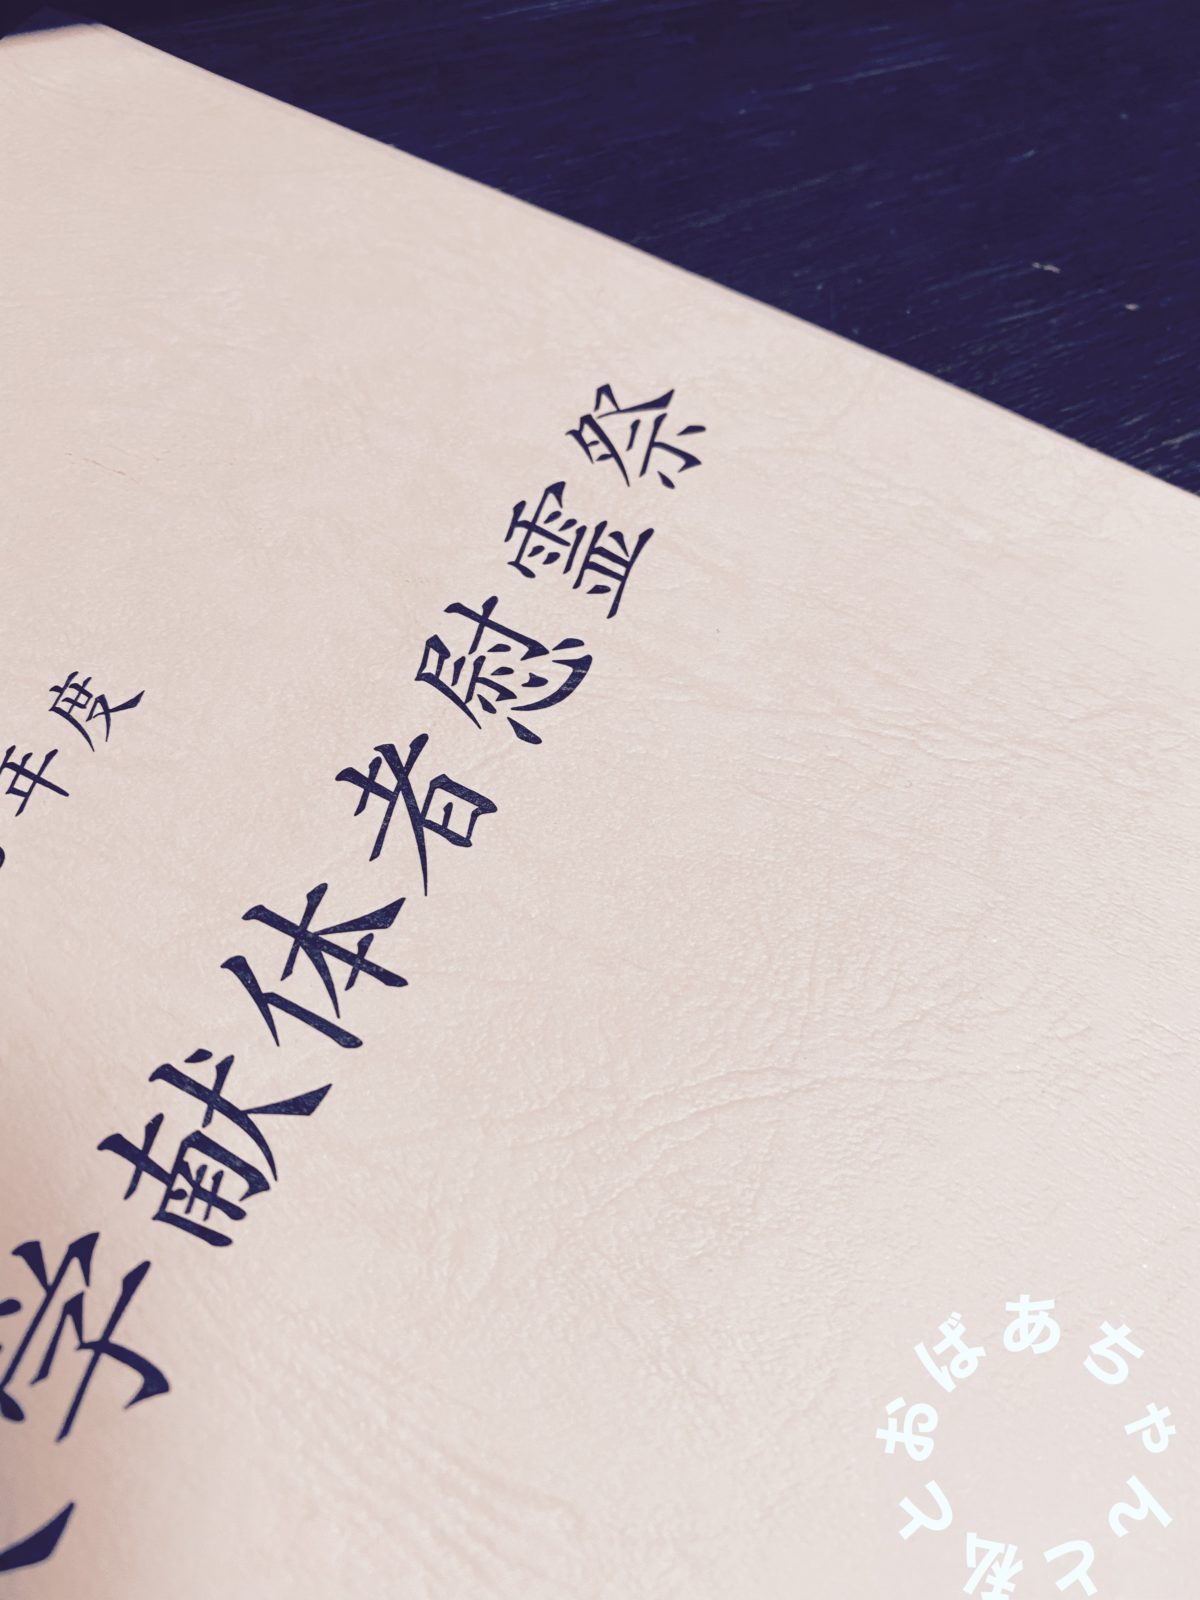 年度
学献体者慰霊祭
おばあちゃんと私と